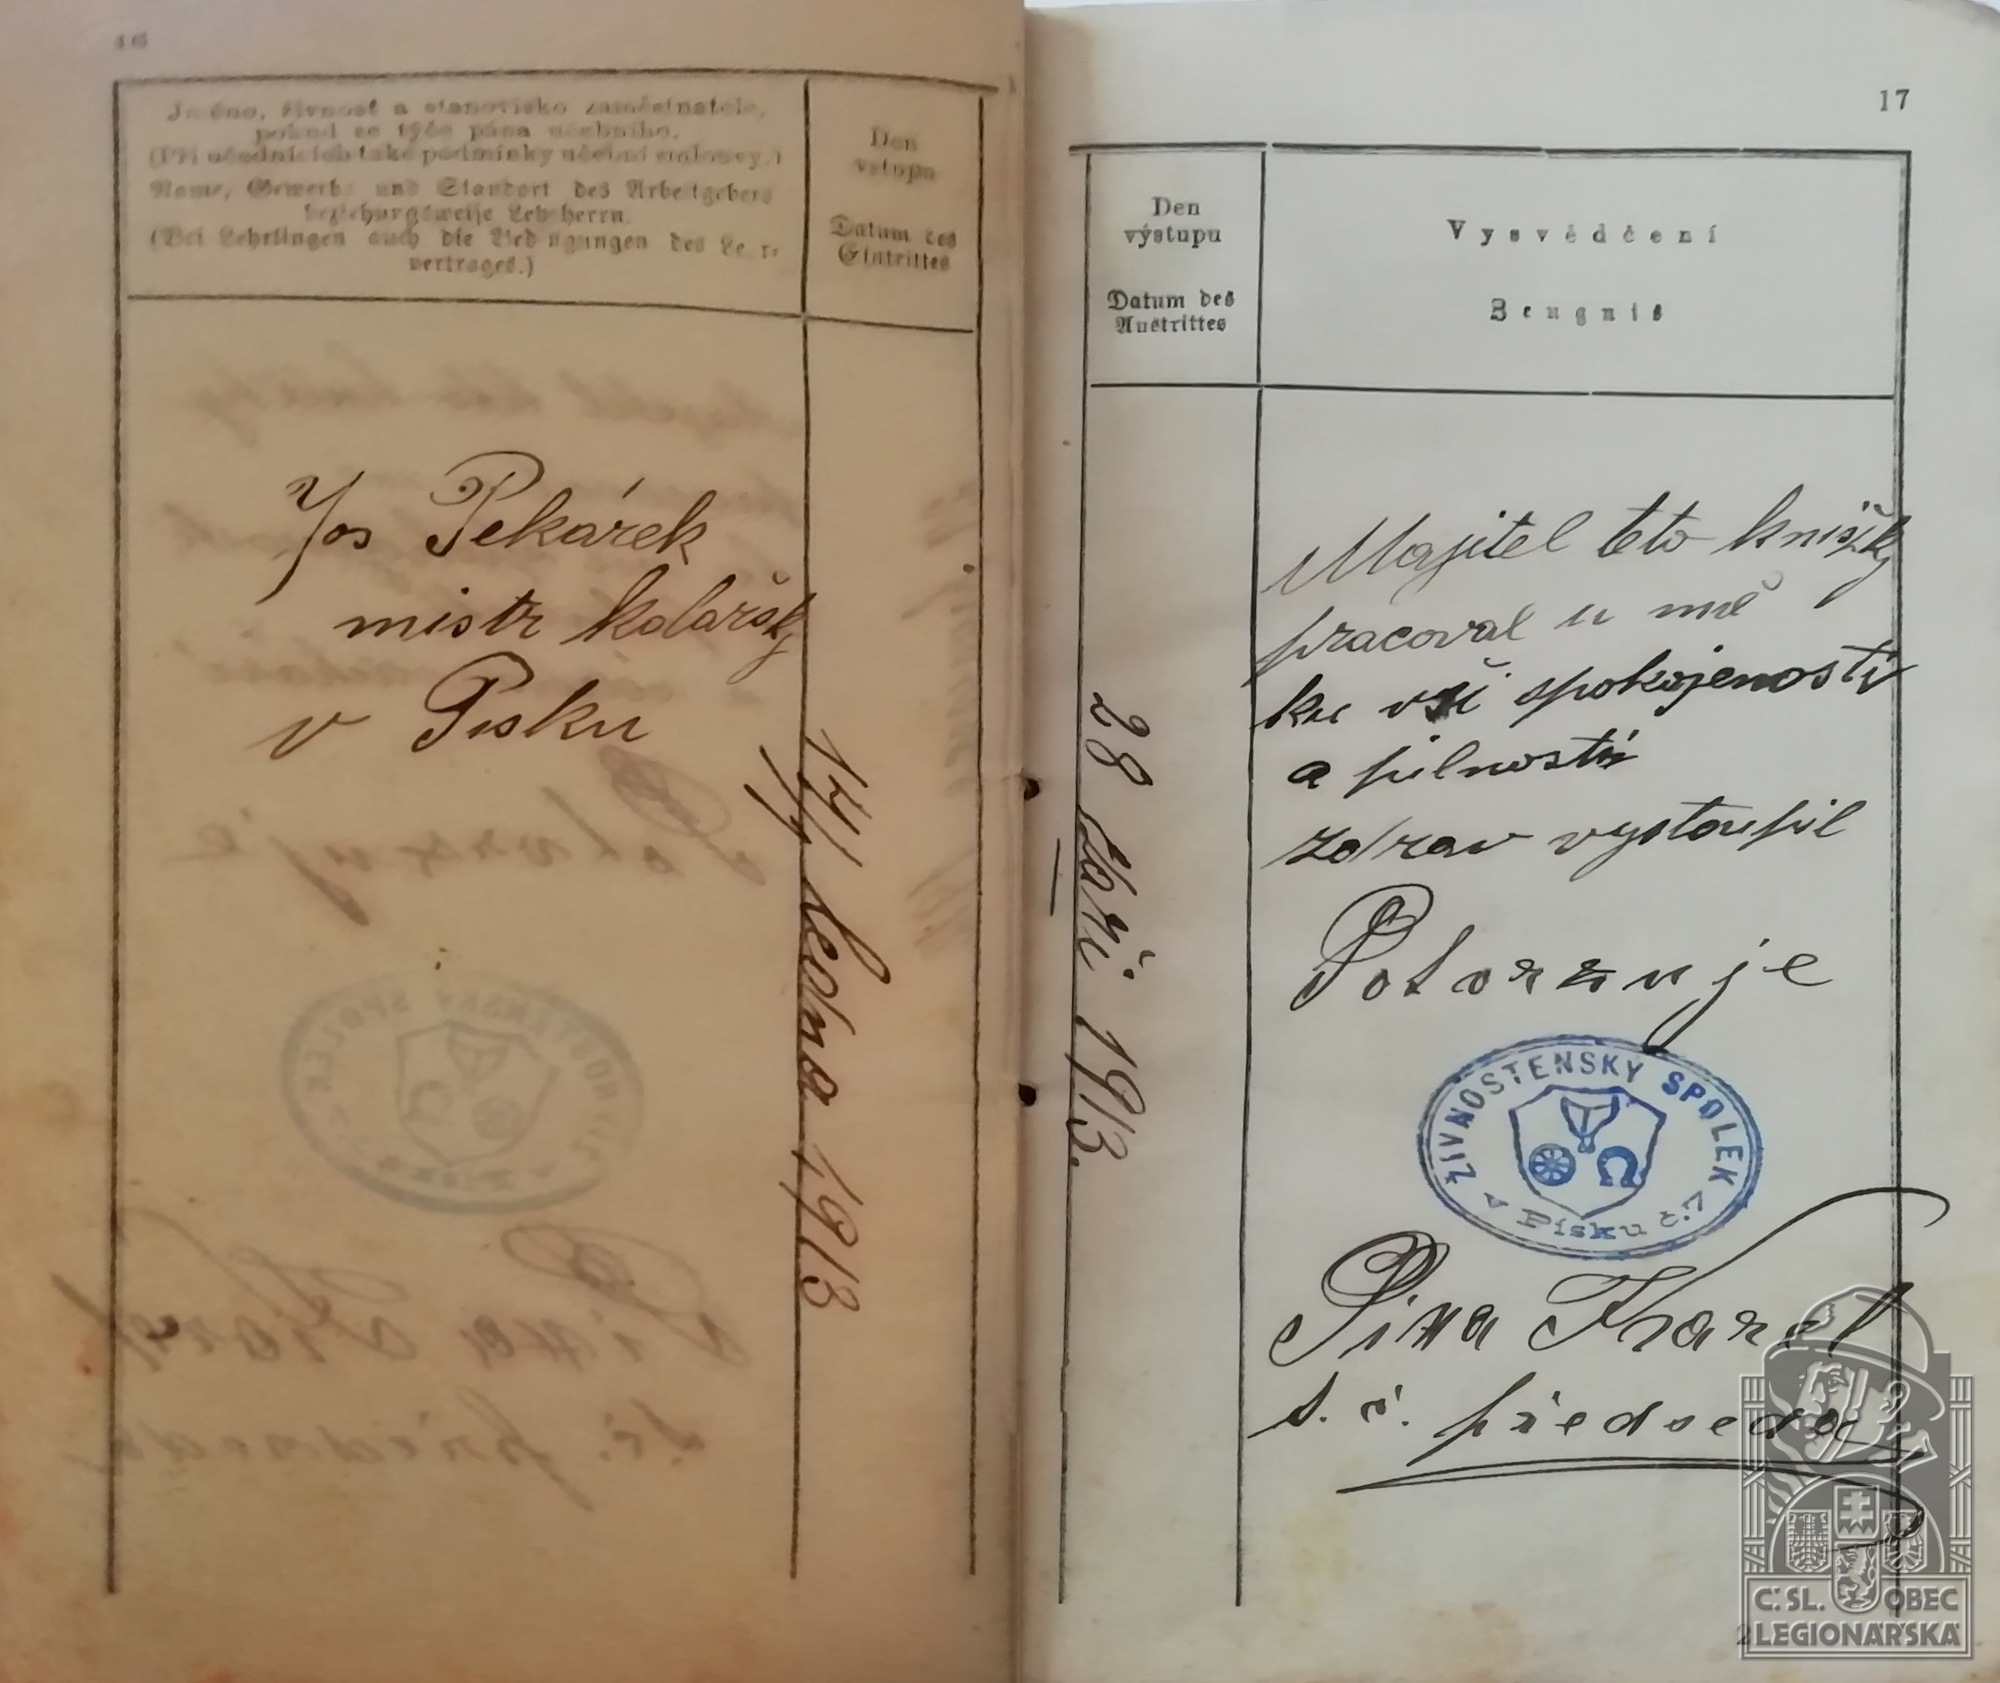 16
Jméno, živnost a stanovisko zaměstnatele,
pokud se týče pána učebního.
(Při učednících také podmínky učební smlouvy.)
Name, Gewerbe und Standort des Arbeitgebers
beziehungsweise Lehrherrn.
(Bei Lehrlingen auch die Bedingungen des Lehr-
vertrages.)
Den
vstupu
Datum des
Eintrittes
Jos Pekárek
mistr kolařský
v Písku
14/ ledna 1913
17
Den
výstupu
Datum des
Austrittes
Vysvědčení
Zeugnis
28 září 1913.
Majitel této knišky
pracoval u mě
ku vší spokojenosti
a pilností
zdráv vystoupil
Potvrzuje
ŽIVNOSTENSKÝ SPOLEK
v Písku č. 7
Karel
t. č. předseda
Č. SL. OBEC
LEGIONÁŘSKÁ